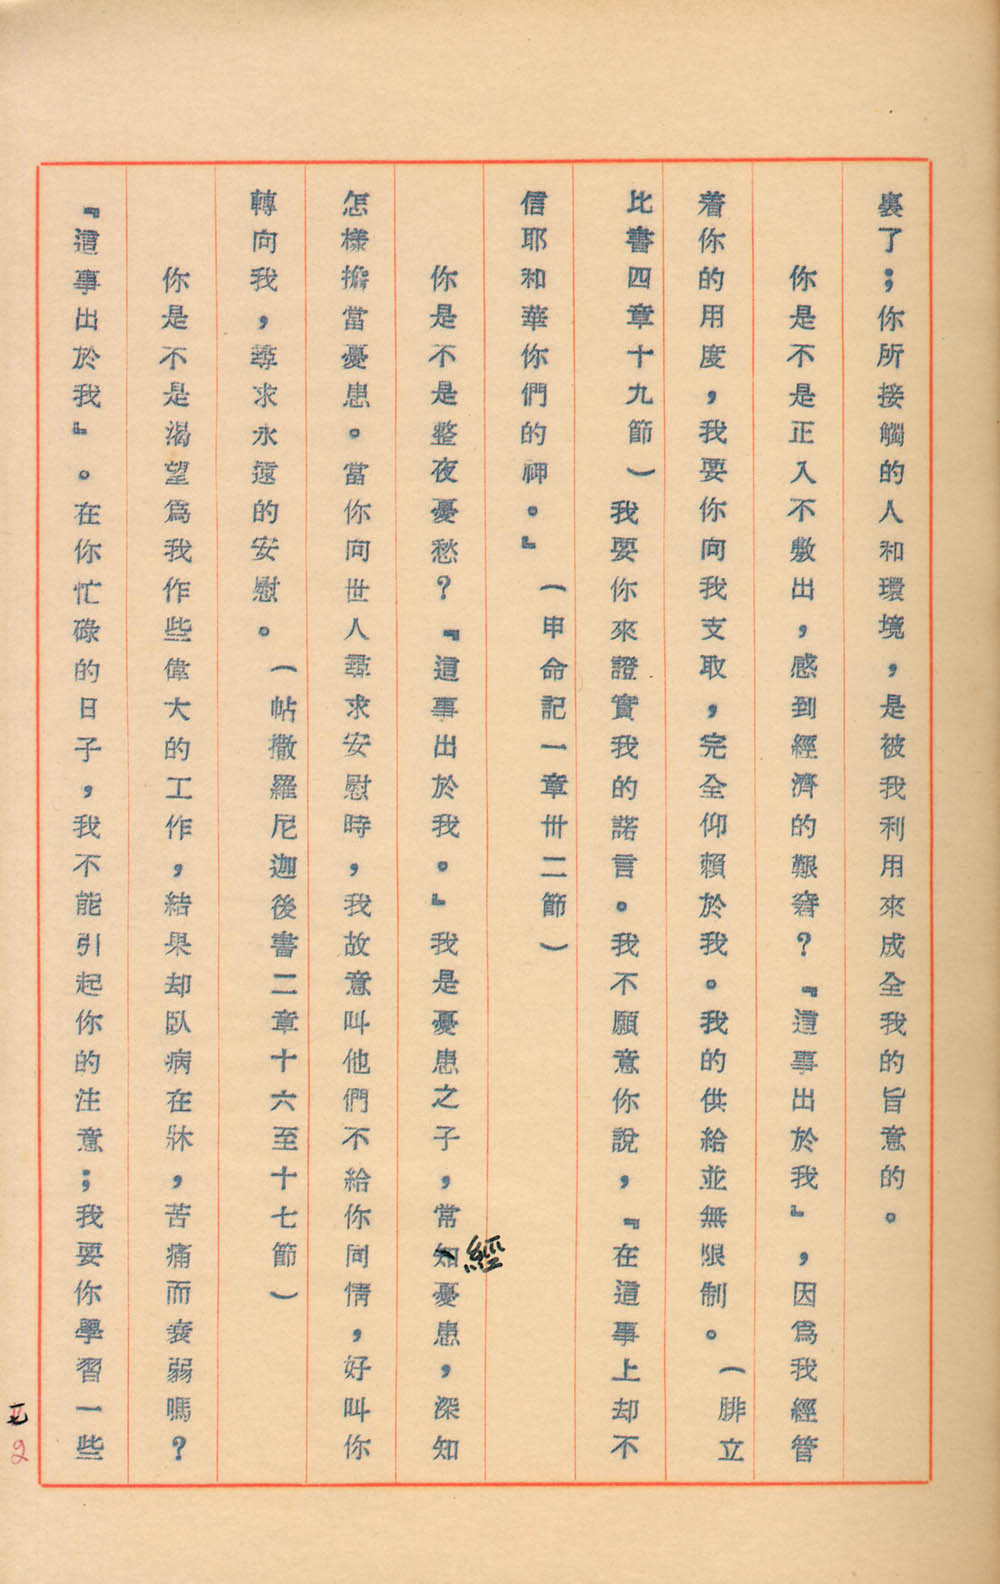 裏了；你所接觸的人和環境，是被我利用來成全我的旨意的。
你是不是正入不敷出，感到經濟的艱窘？『這事出於我』，因爲我經管
着你的用度，我要你向我支取，完全仰賴於我。我的供給並無限制。（腓立
比書四章十九節）我要你來證實我的諾言。我不願意你說，『在這事上却不
信耶和華你們的神。』（申命記一章卅二節）
你是不是整夜憂愁？『這事出於我。』我是憂患之子，常知憂患，深知
經
怎樣擔當憂患。當你向世人尋求安慰時，我故意叫他們不給你同情，好叫你
轉向我，尋求永遠的安慰。（帖撒羅尼迦後書二章十六至十七節）
你是不是渴望爲我作些偉大的工作，結果却臥病在牀，苦痛而衰弱嗎？
『這事出於我』。在你忙碌的日子，我不能引起你的注意；我要你學習一些
2